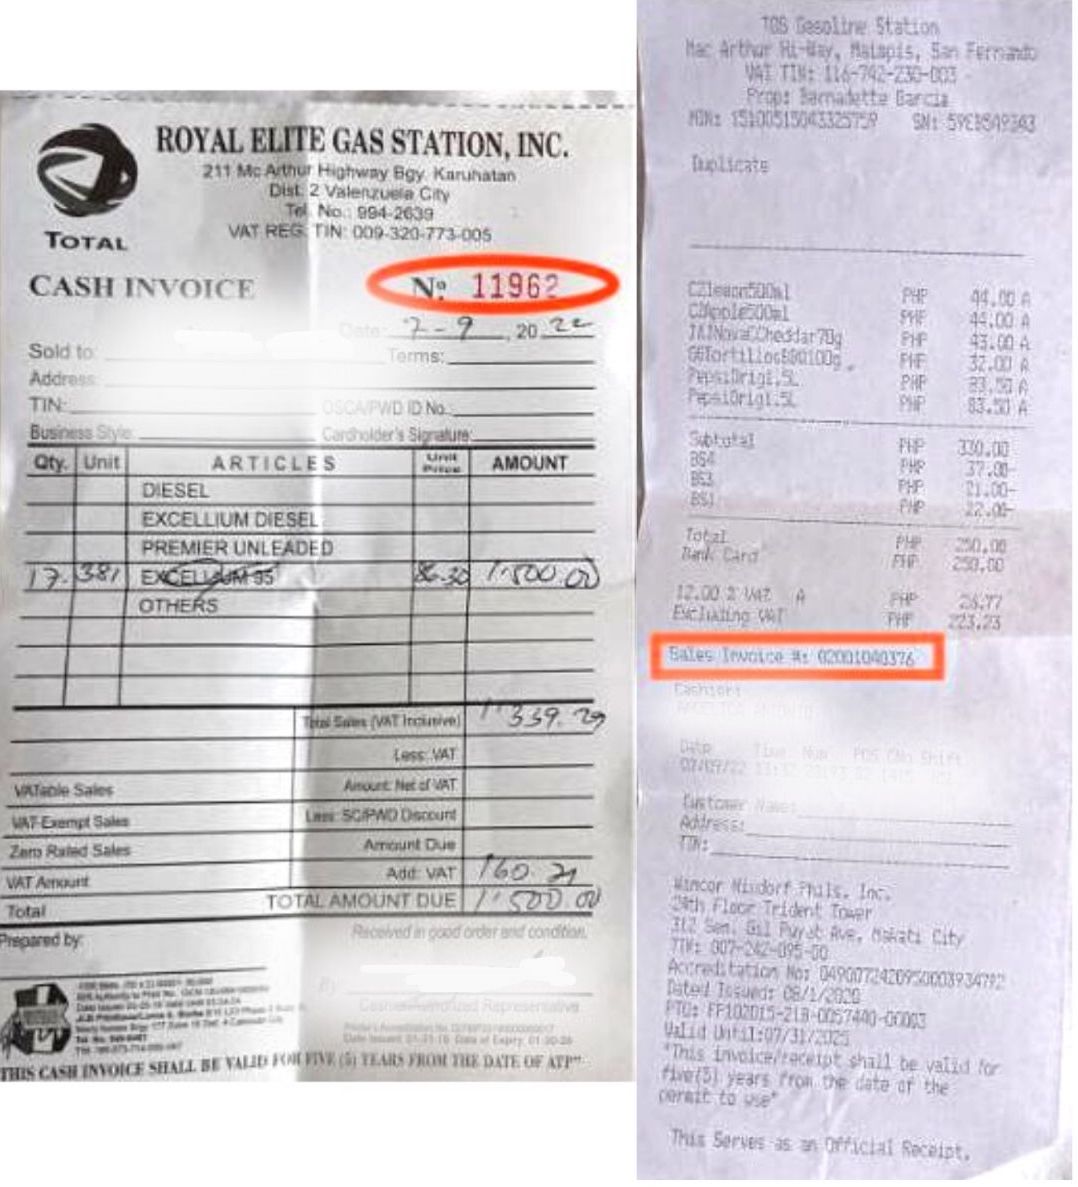 ROYAL ELITE GAS STATION, INC.
211 Mc Arthur Highway Bgy. Karuhatan
Dist. 2 Valenzuela City
Tel. No.: 994-2639
VAT REG. TIN: 009-320-773-005
TOTAL
CASH INVOICE
Nº 11962
Date: 7-9, 20 22
Sold to:
Terms:
Address:
TIN:
OSCA/PWD ID No.:
Business Style:
Cardholder's Signature:
Qty. Unit ARTICLES Unit Price AMOUNT
DIESEL
EXCELLIUM DIESEL
PREMIER UNLEADED
17.381 EXCELLIUM 95 86.30 1'500.00
OTHERS
Total Sales (VAT Inclusive) 1'339.29
Less: VAT
VATable Sales Amount: Net of VAT
VAT-Exempt Sales Less: SC/PWD Discount
Zero Rated Sales Amount Due
VAT Amount Add: VAT 160.71
Total TOTAL AMOUNT DUE 1'500.00
Prepared by:
Received in good order and condition.
By:
Cashier/Authorized Representative
THIS CASH INVOICE SHALL BE VALID FOR FIVE (5) YEARS FROM THE DATE OF ATP"
TOS Gasoline Station
Mac Arthur Hi-Way, Malapis, San Fernando
VAT TIN: 116-742-230-003
Prop: Bernadette Garcia
MIN: 15100515043325759 SN:
Duplicate
C2lemon500ml PHP 44.00 A
C2Apple500ml PHP 44.00 A
JAJNovaCCheddar78g PHP 43.00 A
PHP 32.00 A
PepsiOrig1.5L PHP 83.50 A
PepsiOrig1.5L PHP 83.50 A
Subtotal PHP 330.00
BS4 PHP 37.00-
BS3 PHP 21.00-
BS1 PHP 22.00-
Total PHP 250.00
Bank Card PHP 250.00
12.00 % VAT A PHP 26.77
Excluding VAT PHP 223.23
Sales Invoice #: 02001040376
Cashier:
Date Time Num POS CNo Shift
07/09/22
Customer Name:
Address:
TIN:
Wincor Nixdorf Phils. Inc.
24th Floor Trident Tower
312 Sen. Gil Puyat Ave. Makati City
TIN: 007-242-095-00
Accreditation No: 0490072420950003934792
Dated Issued: 08/1/2020
PTU: FP102015-21B-0057440-00003
Valid Until:07/31/2025
"This invoice/receipt shall be valid for
five(5) years from the date of the
permit to use"
This Serves as an Official Receipt.